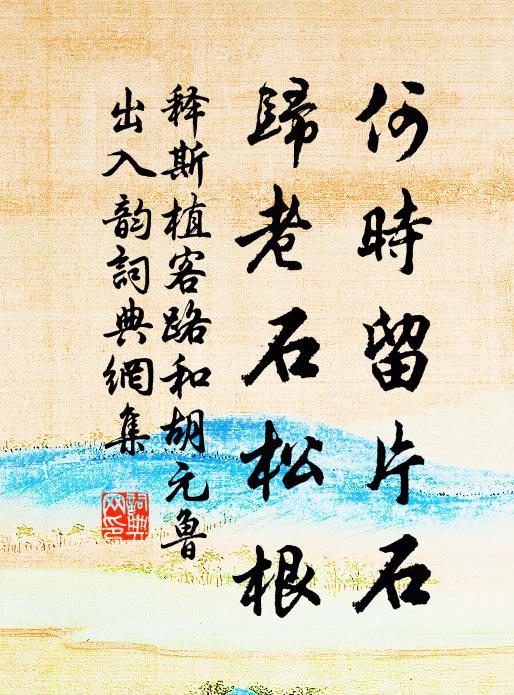 何時留片石
歸老石松根
释斯植客路和胡元鲁
出入韵詞典網集